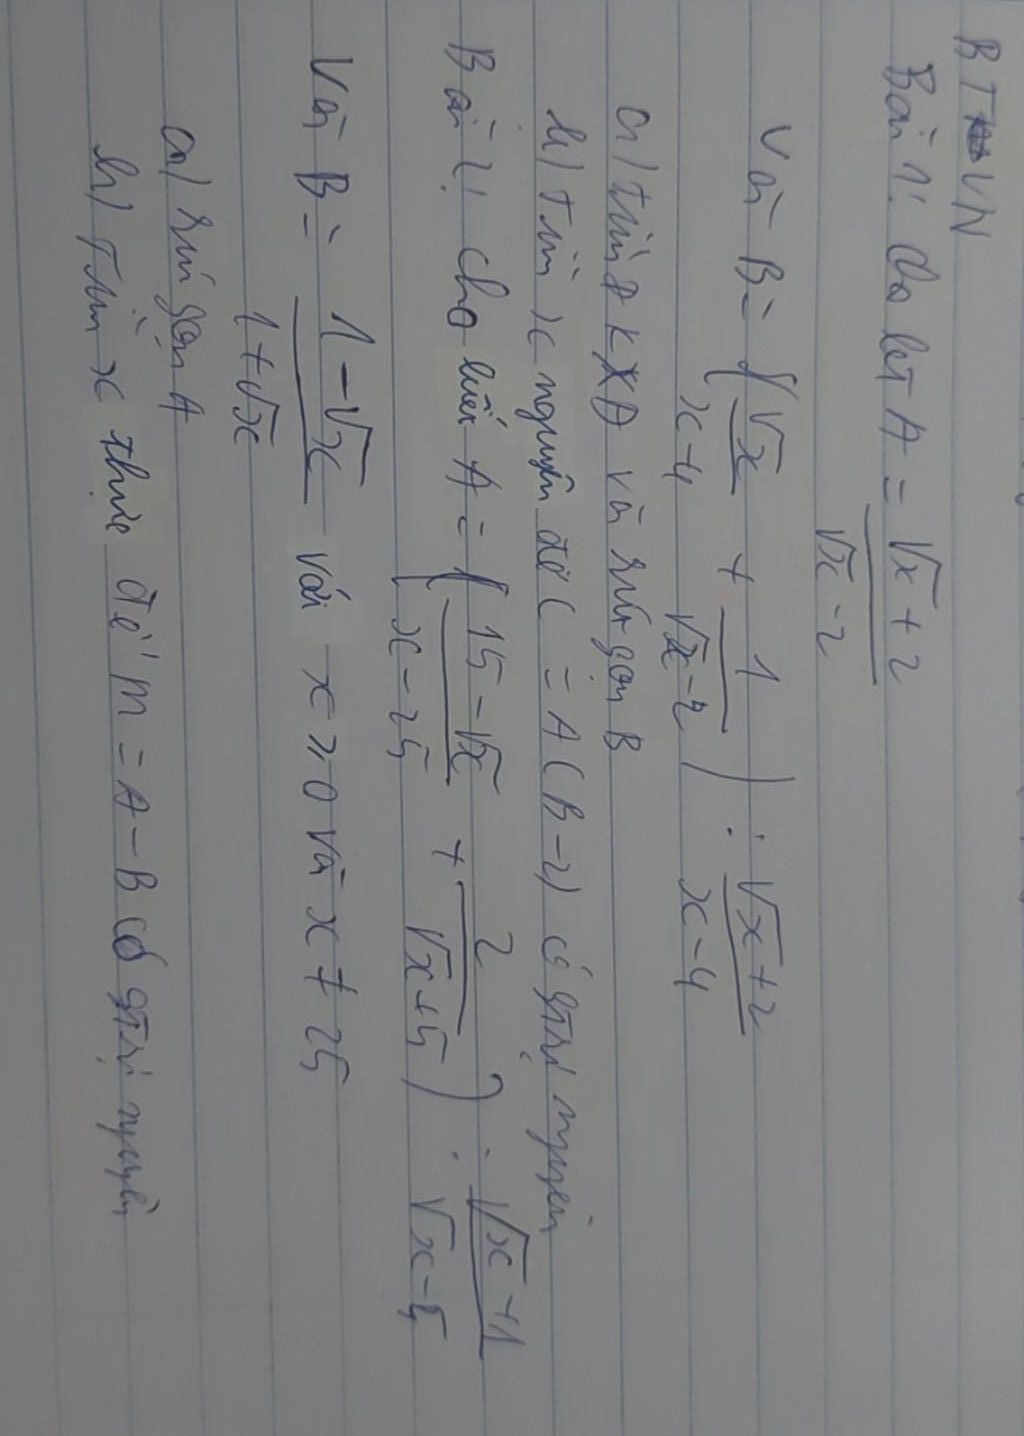 BTVN
Bài 1: Cho bet A = √x + 2 / √x - 2
Và B = (√x / x - 4 + 1 / √x - 2) : √x + 2 / x - 4
a) tìm ĐKXĐ và rút gọn B
b) tìm x nguyên để C = A(B-2) có gtrị nguyên
Bài 2: cho biết A = (15 - √x / x - 25 + 2 / √x + 5) : √x + 1 / √x - 5
Và B = 1 - √x / 1 + √x với x ≥ 0 và x ≠ 25
a) rút gọn A
b) Tìm x thực để M = A - B có gtrị nguyên